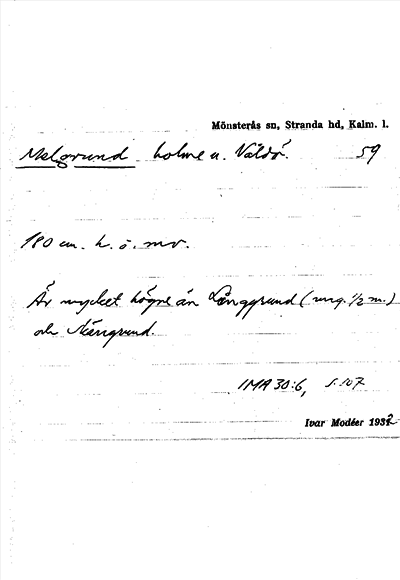 Mönsterås sn, Stranda hd, Kalm. l.
holme u. Valdö. 59
180 cm. h. ö. mv.
Är mycket högre än Långgrund (ung. 1/2 m.)
och
IMA 30:6, s. 107
Ivar Modéer 1932